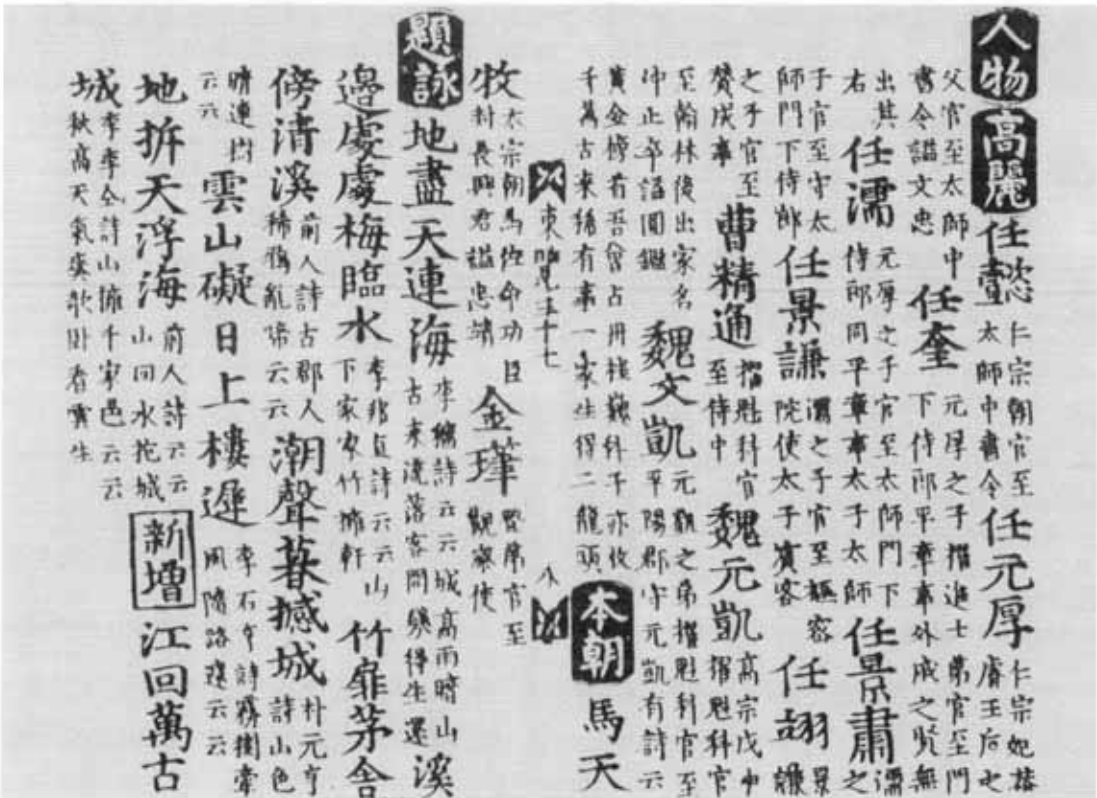 人物高麗任懿仁宗朝官至太師中書令任元厚仁宗妃恭睿王后之
父官至太師中書令諡文忠任奎元厚之子擢進士第官至門下侍郎平章事外戚之賢無
出其右任濡元厚之子官至太師門下侍郎同平章事太子太師任景肅濡之
子官至守太師門下侍郎任景謙濡之子官至樞密院使太子賓客任翊景謙
之子官至贊成事曹精通擢魁科官至侍中魏元凱高宗戊申擢魁科官
至翰林後出家名冲止卒諡圓鑑魏文凱元凱之弟擢魁科官至平陽郡守元凱有詩云
黃金榜首吾曾占丹桂魁科子亦收千萬古來稀有事一家生得二龍頭本朝馬天
東覽三十七 八
牧太宗朝為佐命功臣封長興君諡忠靖金瑾登第官至觀察使
題詠地盡天連海李穡詩云云城高雨暗山古來淪落客問幾得生還溪
邊處處梅臨水李貞詩云云山下家家竹擁軒竹扉茅舍
傍清溪前人詩古郡人稀鴉亂啼云云潮聲暮撼城朴元亨詩山色
晴連樹云云雲山礙日上樓遲李石亨詩霧樹牽風隨路遶云云
地拆天浮海前人詩云云山回水抱城新增江回萬古
城李季仝詩山擁千家邑云云秋高天氣爽欹臥看雲生